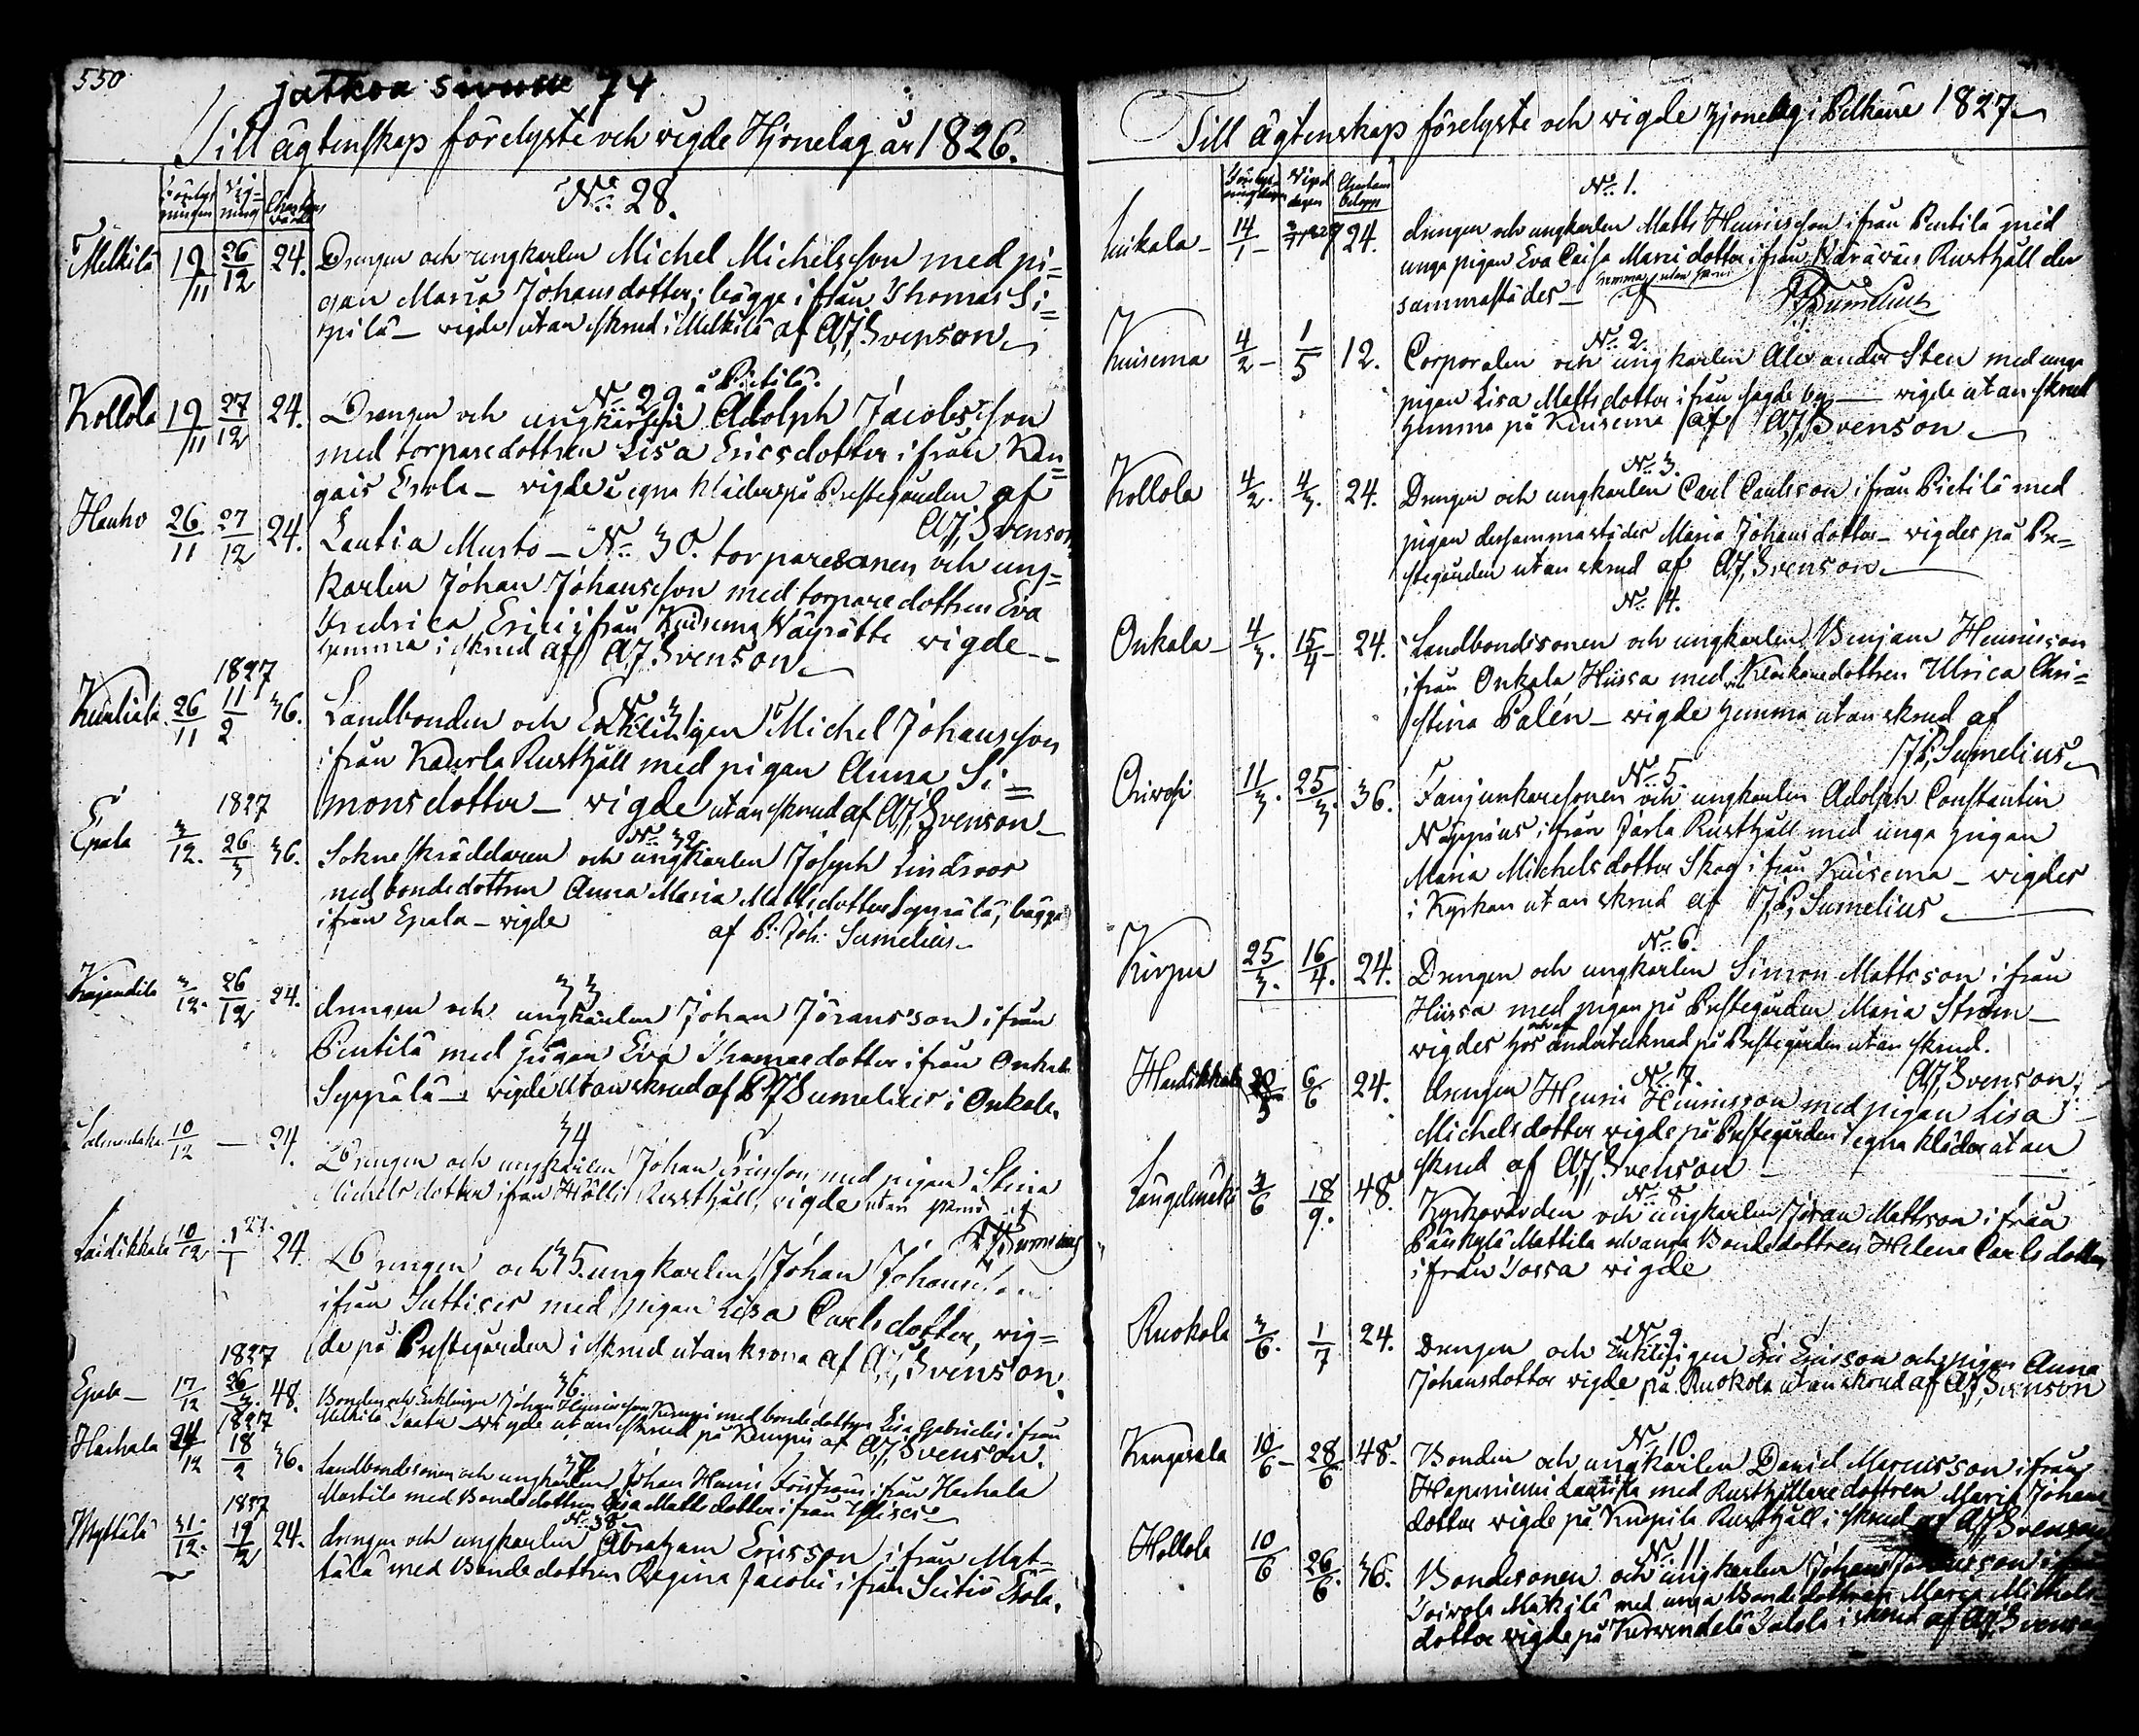 550
jatkoa sivulle 74
Till ägtenskap förelyste och vigde Hjonelag år 1826.
No: 28.
Melkilä 19/11 26/12 24. Drengen och ungkarlen Michel Michelsson med pi=
gan Maria Johansdotter; bägge ifrån Thomas Si=
pilä – vigde utan skrud i Melkilä af AJ, Svenson
No: 29. å Pietilä.
Kollola 19/11 27/12 24. Drengen och ungkarlen Adolph Jacobsson
med torparedottren Lisa Ericsdotter ifrån Kan=
gais Erola – vigde i egna kläder på Prestegården af
AJ, Svenson
Hauho 26/11 27/12 24. Lautia Musto – No: 30. torparesonen och ung=
karlen Johan Johansson med torparedottren Eva
Fredrica Erici ifrån Kuisema Näyrätte vigde –
hemma i skrud af AJ Svenson
1827
No 31
26/11 11/2 36. Landbonden och Enklingen Michel Johansson
ifrån Kaurla Rusthåll med pigan Anna Si=
monsdotter – vigde utan skrud af AJ, Svenson –
1827
No: 32.
Epala 3/12. 26/3 36. Sokneskräddaren och ungkarlen Joseph Lindroos
med bondedottren Anna Maria Mattsdotter Seppälä, bägge
ifrån Epala – vigde af P: Joh: Sumelius –
33
3/12. 26/12 24. drengen och ungkarlen Johan Jöransson ifrån
Pentilä med pigan Eva Thomasdotter ifrån Onkala
Seppälä – vigde utan skrud af PJSumelius i Onkala.
34
10/12 – 24. Drengen och ungkarlen Johan Ericsson med pigan Stina
Michelsdotter ifrån Hölli Rusthåll, vigde utan skrud af
PJSumelius
Laidikkala 10/12 1/1 27. 24. Drengen och 35. ungkarlen Johan Johansson
ifrån Suttises med pigan Lisa Carlsdotter, vig=
de på Prestegården i skrud utan krona af AJ, Svenson.
1827
36.
Epala – 17/12 26/3. 48. Bonden och Enklingen Johan Henricsson Kemppi med bondedottren Lisa Gabrielis ifrån
Melkilä – vigde utan skrud på Kemppis af AJ, Svenson.
1827
37
Hachala 24/12 18/2 36. Landbondesonen och ungkarlen Johan Henric ifrån Hachala
Martila med Bondedottren Lisa Mattsdotter ifrån
1827
No: 38
Myttälä 31./12. 19/2 24. drengen och ungkarlen Abraham Ericsson ifrån Myt=
tälä med Bondedottren Regina Jacobi ifrån Seitio Erola.
Till ägtenskap förelyste och vigde hjonelag i Pelkäne 1827
No: 1.
Lukala – 14/1 – 24. drengen och ungkarlen Matts Henricsson ifrån Pentilä med
unga pigan Eva Caisa Marci dotter ifrån Rusthåll der
sammastädes – hemma utan skrud af PJSumelius
No: 2.
Kuisema 4/2 – 1/5 12. Corporalen och ungkarlen Alexander Sten med unga
pigan Lisa Mattsdotter ifrån sagde by – vigde utan skrud
hemma på Kuisema af AJ, Svenson
No: 3.
Kollola 4/2. 4/3. 24. Drengen och ungkarlen Carl Carlsson ifrån Pietilä med
pigan dersammastädes Maria Johansdotter – vigdes på Pre=
stegården utan skrud af AJ, Svenson
No: 4.
Onkala – 4/3. 15/4 – 24. Landbondesonen och ungkarlen Benjam Henricsson
ifrån Onkala Hiirsa med Klockaredottren Ulrica Chri=
stina Palén – vigde hemma utan skrud af
PJ, Sumelius
No: 5.
11/3. 25/3. 36. Fanjunkaresonen och ungkarlen Adolph Constantin
Näppius ifrån Jarla Rusthåll med unga pigan
Maria Michelsdotter Skog ifrån Kuisema – vigdes
i Kyrkan utan skrud af PJ, Sumelius
No: 6.
25/3. 16/4. 24. Drengen och ungkarlen Simon Mattsson ifrån
Hiirsa med pigan på Prestegården Maria Ström –
vigdes hos och af undertecknad på Prestegården utan skrud.
AJ, Svenson;
No. 7.
20/5 6/6 24. drengen Henric Henricsson med pigan Lisa
Michelsdotter vigde på Prestegården i egna kläder utan
skrud af AJ, Svenson –
No: 8
Längelmäki 3/6 18/9. 48. Kyrkovärden och ungkarlen Jöran Mattsson ifrån
Mattila och unga Bondedottren Helena Carlsdotter
ifrån Vossa vigde
No: 9
Ruokola 3/6. 1/7 24. Drengen och Enklingen Eric Ericsson och pigan Anna
Johansdotter vigde på Ruokola utan skrud af AJ, Svenson
No: 10
Kangasala 10/6 – 28/6. 48. Bonden och ungkarlen Daniel Marcusson ifrån
Haponiemi Lautila med Rusthållaredottren Maria Johans
dotter vigde på Kuopila Rusthåll i skrud af AJ, Svenson
No: 11
Hollola 10/6 26/6. 36. Bondesonen och ungkarlen Johan ifrån
Toivola Mäkilä med unga Bondedottren Maria Michels=
dotter vigde på Kurvendelä Talola i skrud af AJ, Svenson